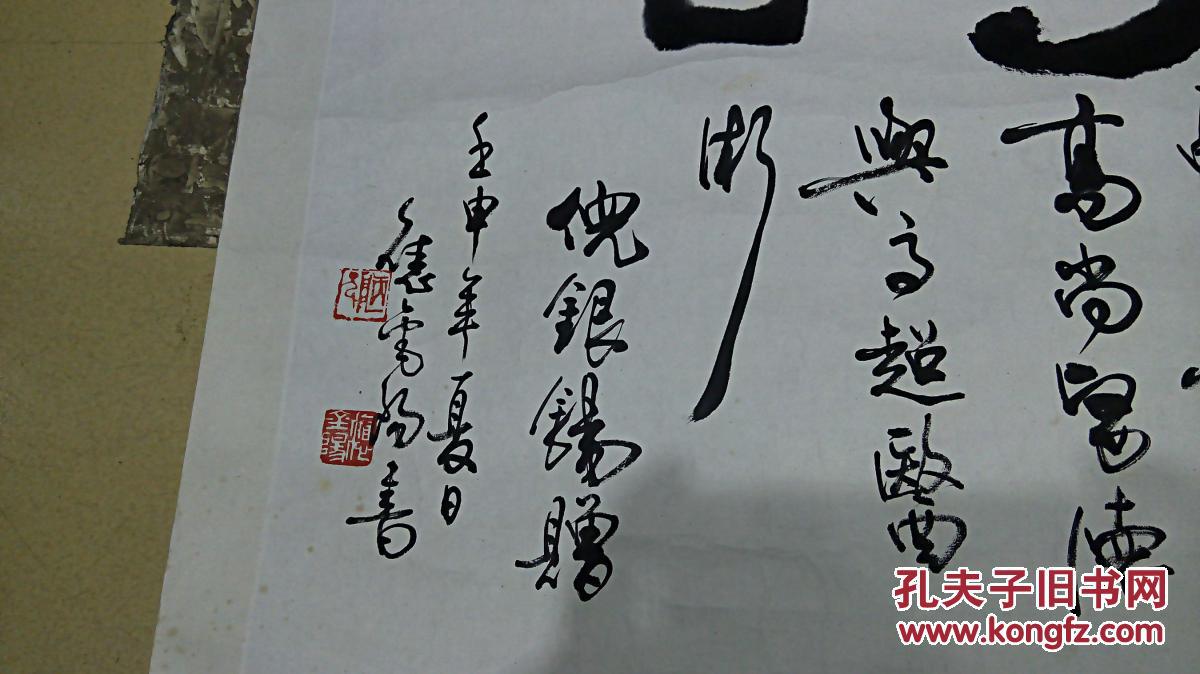 高尚医德
與高超醫
術
倪銀錫贈
壬申年夏日
書
孔夫子旧书网
www.kongfz.com